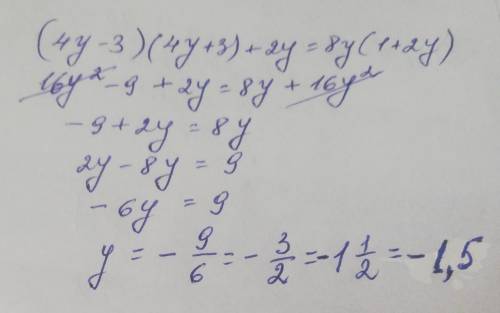 (4y-3)(4y+3)+2y=8y(1+2y)
16y²-9+2y=8y+16y²
-9+2y=8y
2y-8y=9
-6y=9
y=-9/6=-3/2=-1 1/2=-1,5